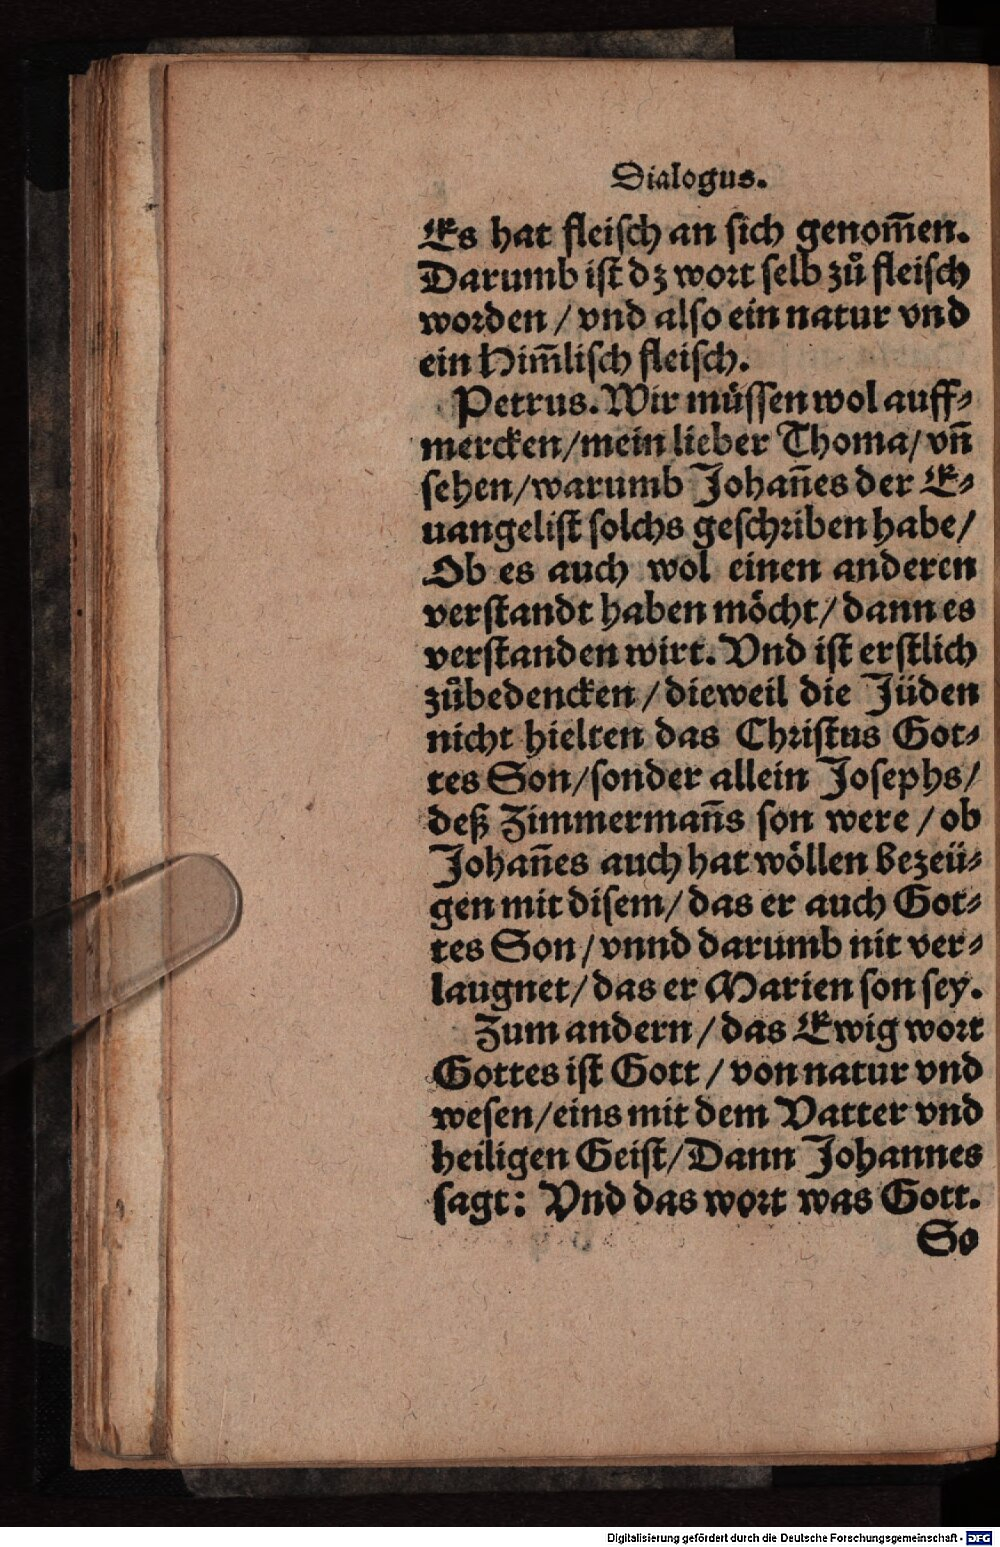 Dialogus.
Es hat fleisch an sich genom̄en.
Darumb ist dz wort selb zů fleisch
worden / vnd also ein natur vnd
ein Him̄lisch fleisch.
Petrus. Wir müssen wol auff⸗
mercken/mein lieber Thoma/ vn̄
sehen/warumb Johan̄es der E⸗
uangelist solchs geschriben habe/
Ob es auch wol einen anderen
verstandt haben möcht/ dann es
verstanden wirt. Vnd ist erstlich
zůbedencken / dieweil die Jüden
nicht hielten das Christus Got⸗
tes Son/sonder allein Josephs/
deß Zimmerman̄s son were / ob
Johan̄es auch hat wöllen bezeü⸗
gen mit disem/ das er auch Got⸗
tes Son/ vnnd darumb nit ver⸗
laugnet/ das er Marien son sey.
Zum andern / das Ewig wort
Gottes ist Gott / von natur vnd
wesen/eins mit dem Vatter vnd
heiligen Geist/Dann Johannes
sagt: Vnd das wort was Gott.
So
Digitalisierung gefördert durch die Deutsche Forschungsgemeinschaft - DFG